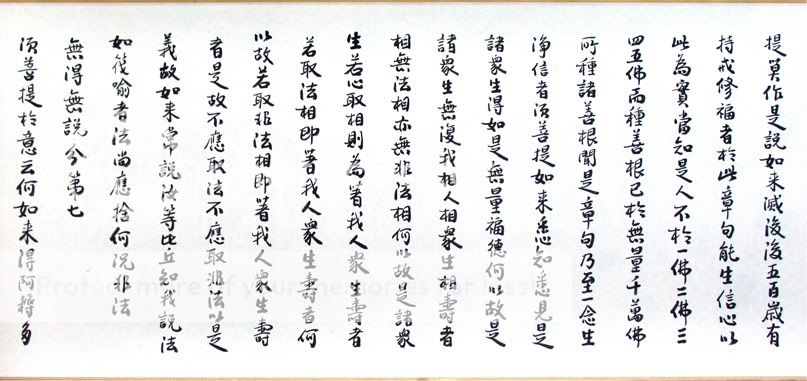 提莫作是說如来滅後後五百歲有
持戒修福者於此章句能生信心以
此為實當知是人不於一佛二佛三
四五佛而種善根已於無量千萬佛
所種諸善根聞是章句乃至一念生
淨信者須菩提如来悉知悉見是
諸衆生得如是無量福德何以故是
諸衆生無復我相人相衆生相壽者
相無法相亦無非法相何以故是諸衆
生若心取相則為著我人衆生壽者
若取法相即著我人衆生壽者何
以故若取非法相即著我人衆生壽
者是故不應取法不應取非法以是
義故如来常說汝等比丘知我說法
如筏喻者法尚應捨何況非法
無得無說分第七
須菩提於意云何如来得阿耨多
Protect more of your memories for less!